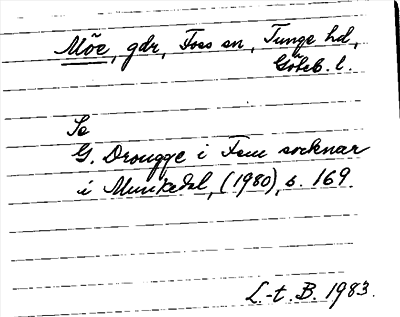 Möe, gdr, Foss sn, Tunge hd,
Göteb. l.
Se
G. Drougge i Fem socknar
i Munkedal, (1980), s. 169.
L.-t. B. 1983.